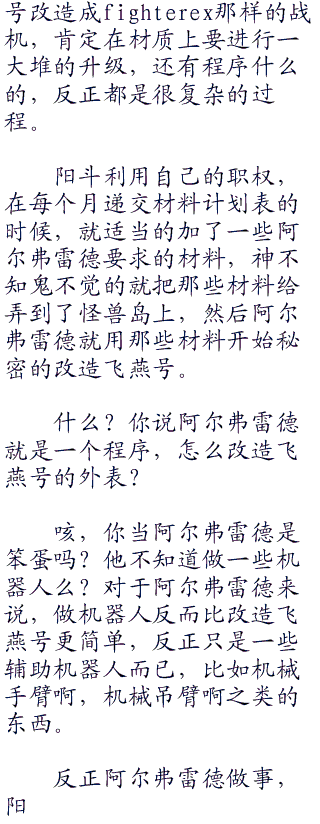 号改造成fighterex那样的战
机，肯定在材质上要进行一
大堆的升级，还有程序什么
的，反正都是很复杂的过
程。
阳斗利用自己的职权，
在每个月递交材料计划表的
时候，就适当的加了一些阿
尔弗雷德要求的材料，神不
知鬼不觉的就把那些材料给
弄到了怪兽岛上，然后阿尔
弗雷德就用那些材料开始秘
密的改造飞燕号。
什么？你说阿尔弗雷德
就是一个程序，怎么改造飞
燕号的外表？
咳，你当阿尔弗雷德是
笨蛋吗？他不知道做一些机
器人么？对于阿尔弗雷德来
说，做机器人反而比改造飞
燕号更简单，反正只是一些
辅助机器人而已，比如机械
手臂啊，机械吊臂啊之类的
东西。
反正阿尔弗雷德做事，
阳